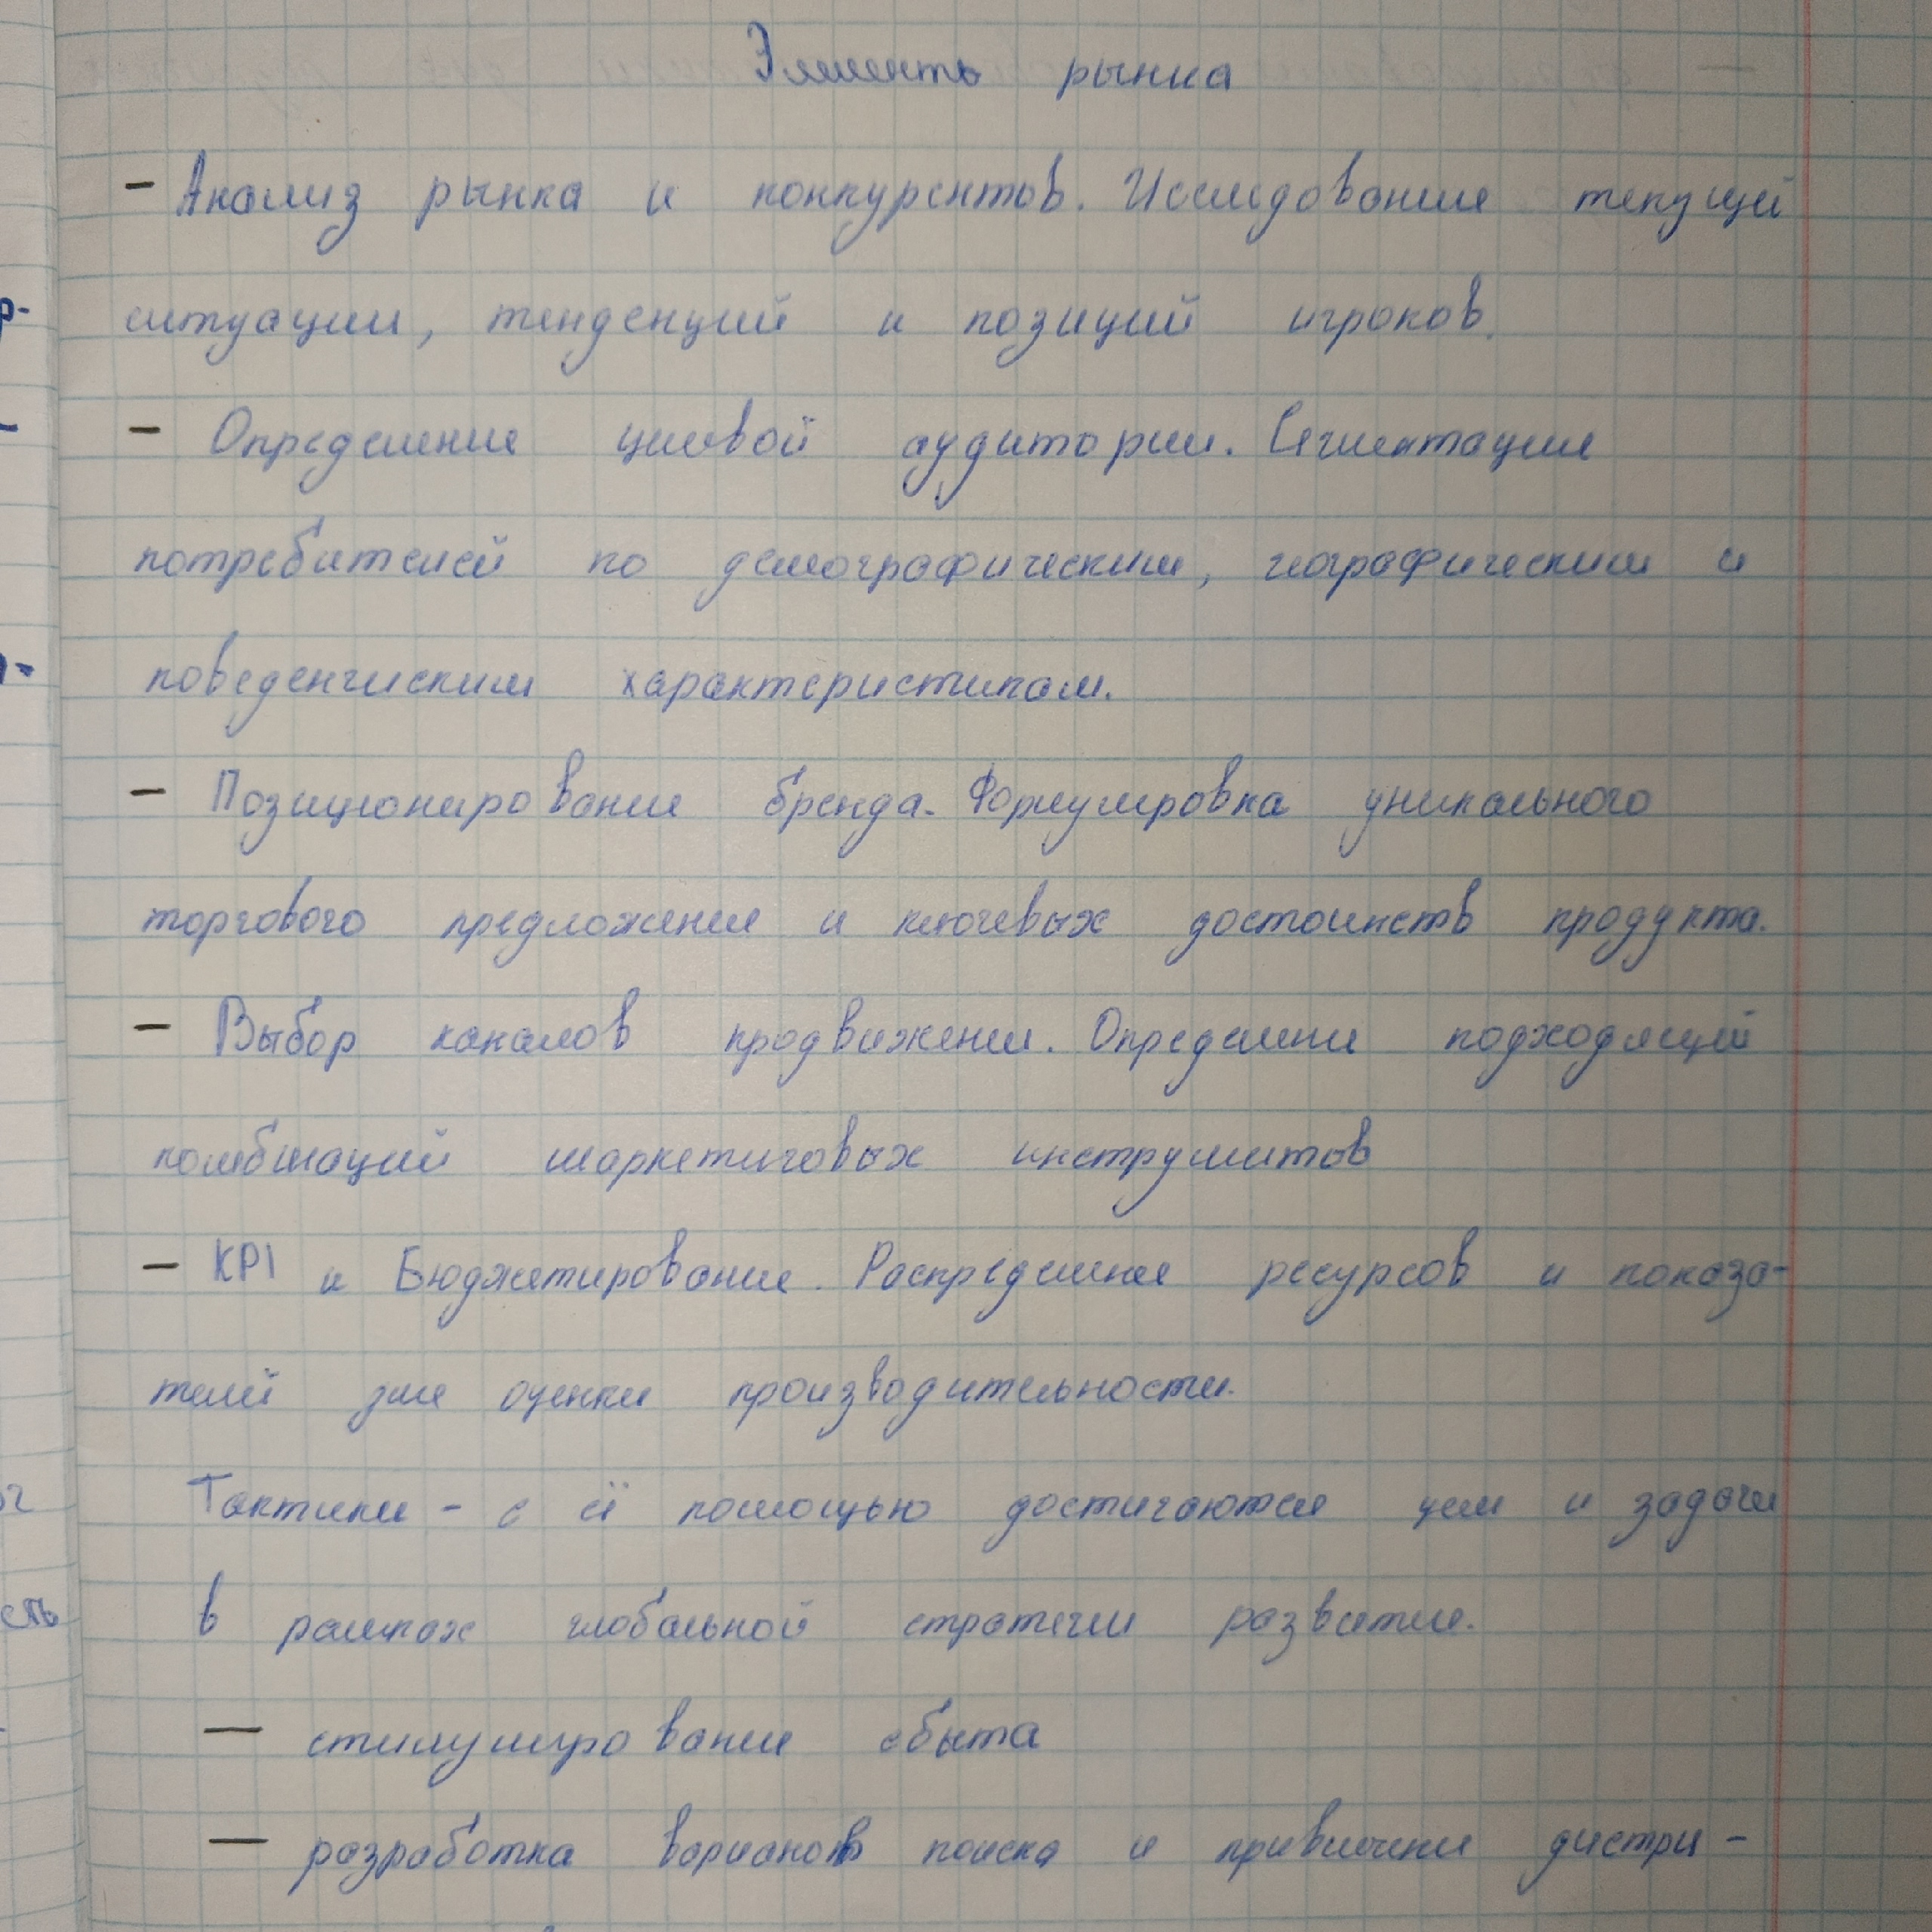 Элементы рынка
– Анализ рынка и конкурентов. Исследование текущей
ситуации, тенденций и позиций игроков.
– Определение целевой аудитории. Сегментация
потребителей по демографическим, географическим и
поведенчиским характеристикам.
– Позиционирование бренда. Формулировка уникального
торгового предложения и ключевых достоинств продукта.
– Выбор каналов продвижения. Определение подходящей
комбинаций маркетинговых инструментов
– KPI и Бюджетирование. Распределение ресурсов и показа-
телей для оценки производительности.
Тактики – с её помощью достигаются цели и задачи
в рамках глобальной стратегии развития.
— стимулирование сбыта
— разработка вариантов поиска и привлечения дистри-